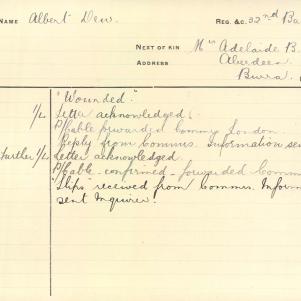 NAME Albert Dew. REG. &C. 32nd Ba
NEXT OF KIN Mrs Adelaide B.
ADDRESS Aberdeen
Burra
"Wounded."
1/L. Letter acknowledged.
P/Cable forwarded Commy London.
Reply from Commrs. Information sen
Further 1/L. Letter acknowledged.
P/Cable confirmed - forwarded Comm
"Slips" received from Commrs. Inform
sent Inquirer.